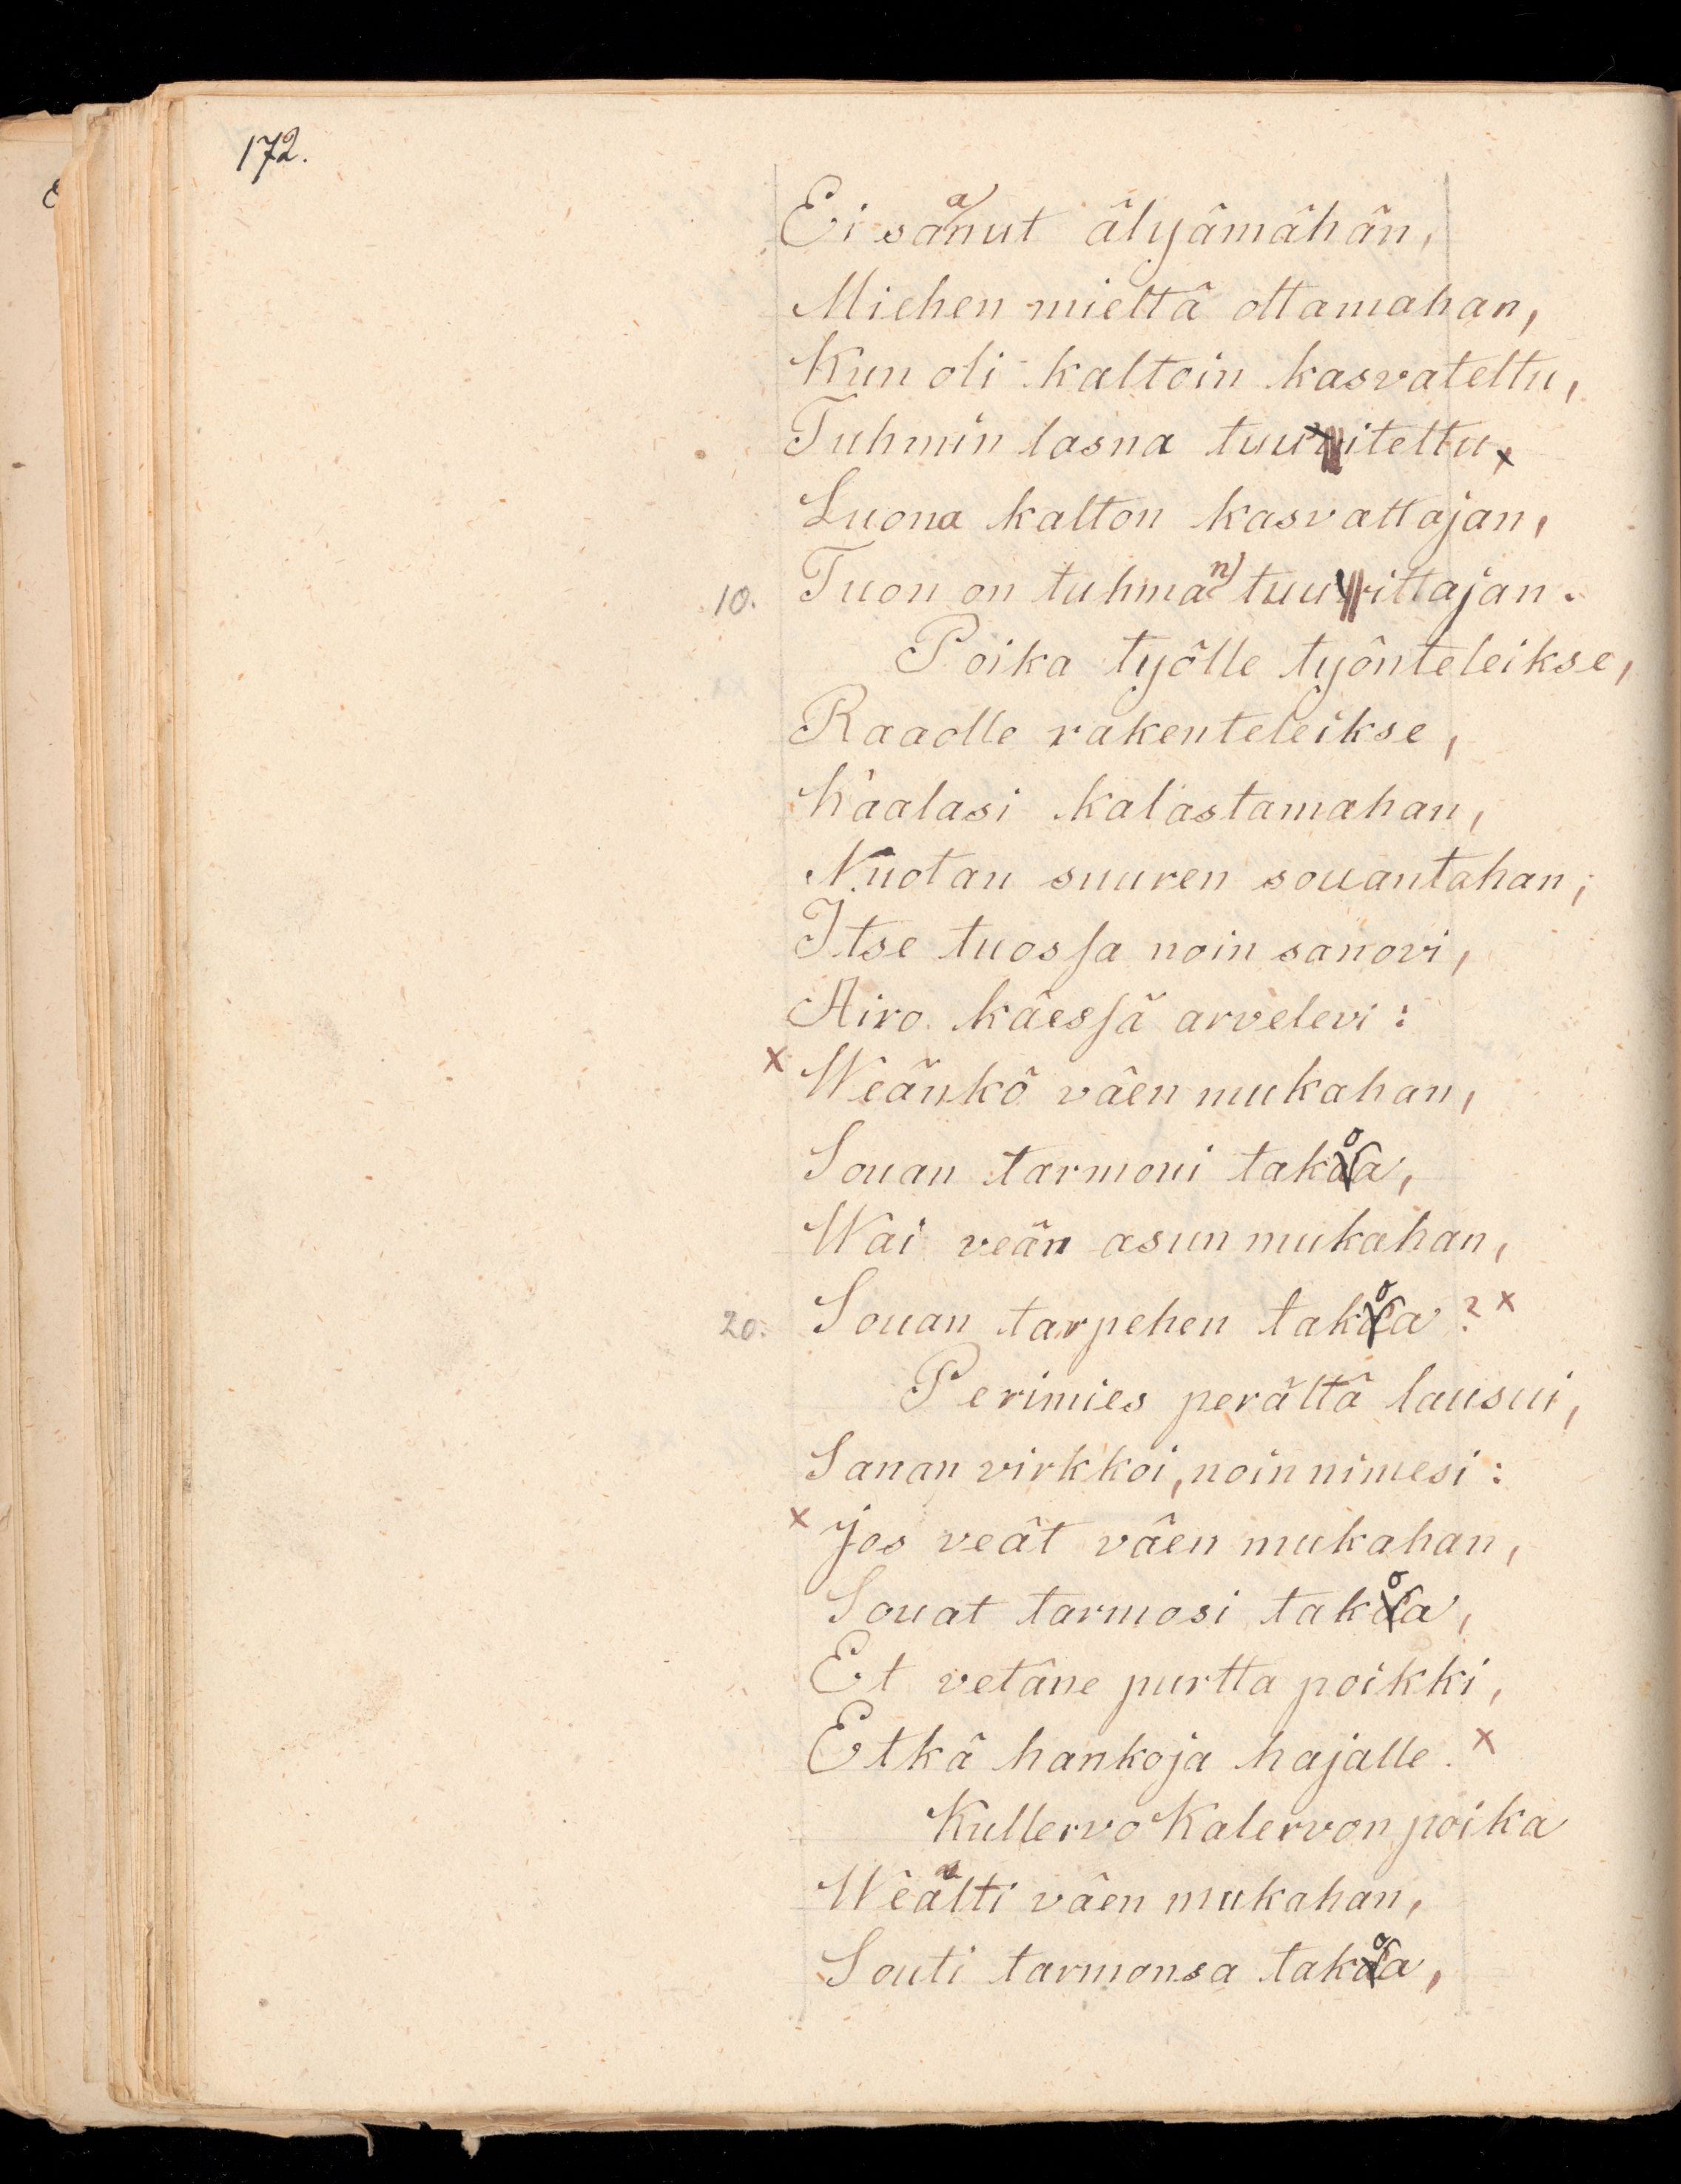 172.
Ei saanut älyämähän,
Miehen mieltä ottamahan,
Kun oli kaltoin kasvateltu,
Tuhmin lasna tuuiteltu,
Luona kalton kasvattajan,
10. Tuon on tuhman tuuittajan.
Poika työlle työnteleikse,
Raaolle rakenteleikse,
Kaalasi kalastamahan,
Nuotan suuren souantahan;
Itse tuossa noin sanovi,
Airo käessä arvelevi:
x Weänkö väen mukahan,
Souan tarmoni takoa,
Wai veän asun mukahan,
20. Souan tarpehen takoa? x
Perimies perältä lausui,
Sanan virkkoi, noin nimesi:
x Jos veät väen mukahan,
Souat tarmosi takoa,
Et vetäne purtta poikki,
Etkä hankoja hajalle. x
Kullervo Kalervon poika
Weälti väen mukahan,
Souti tarmonsa takoa,